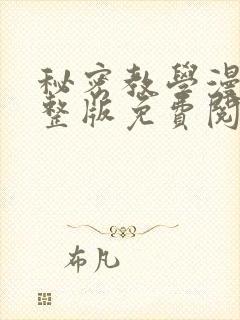 秘密教學漫
整版免費閱
布凡